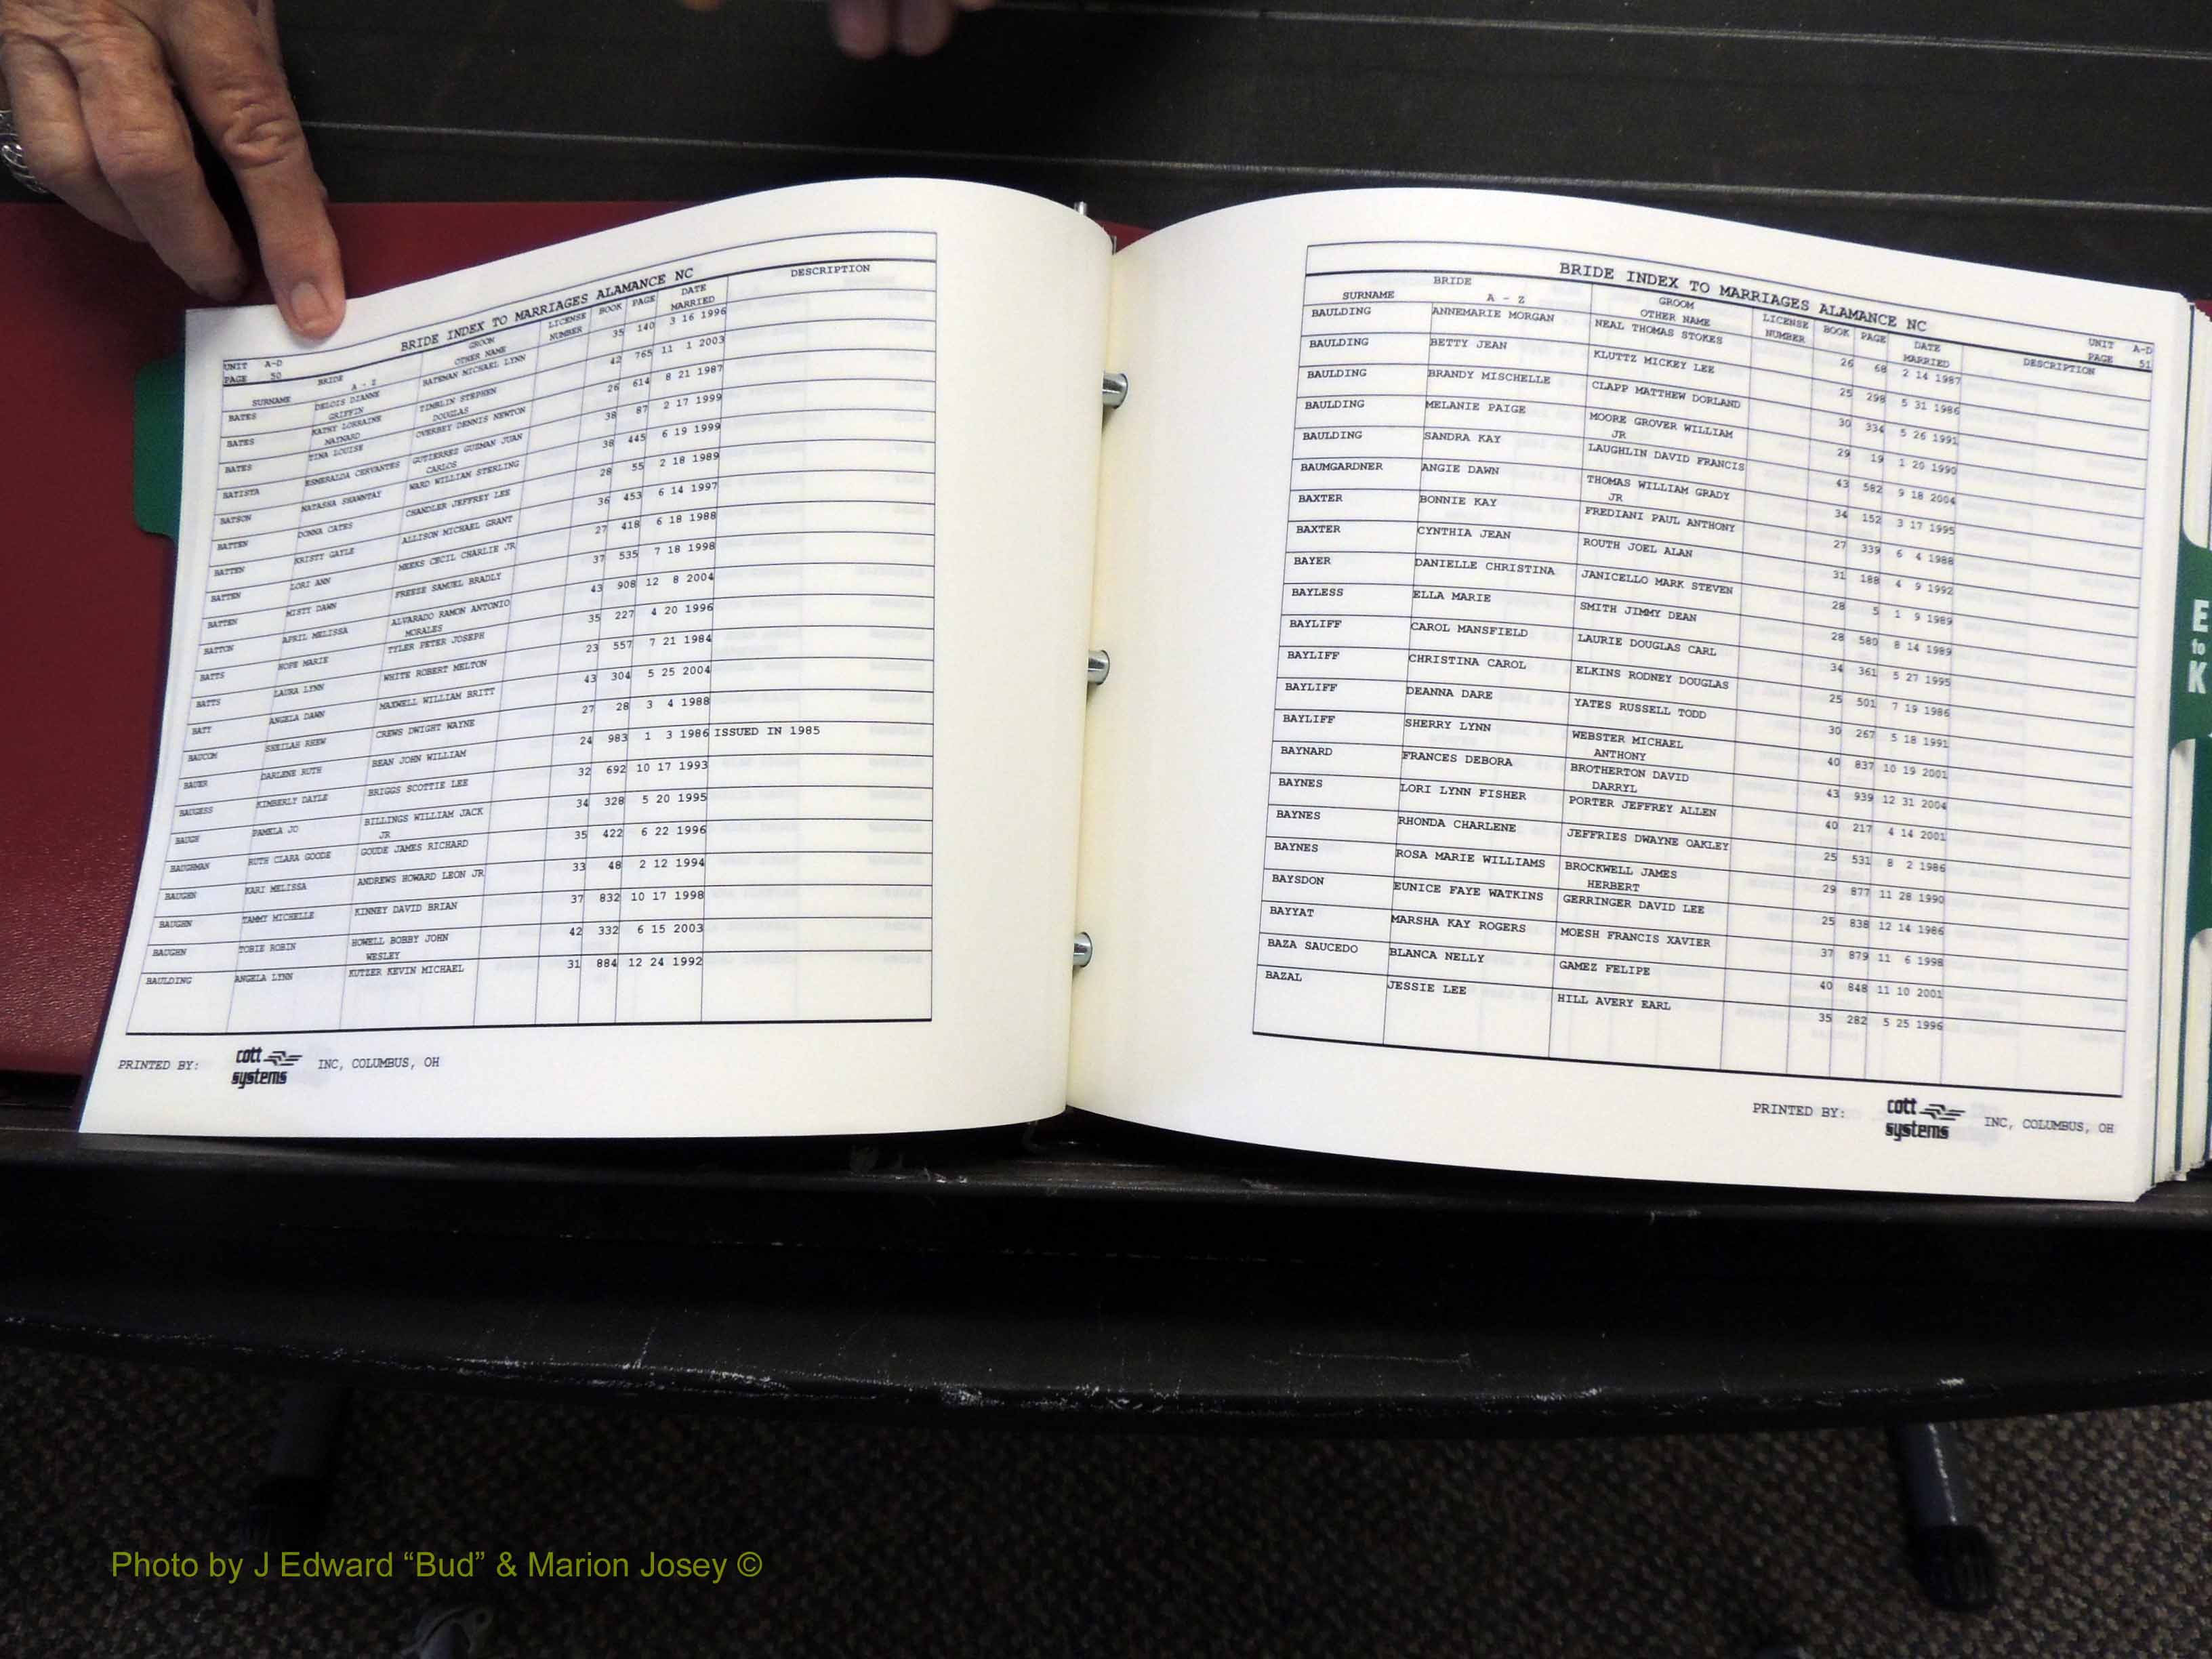 BRIDE INDEX TO MARRIAGES ALAMANCE NC
UNIT A-D
PAGE 50
BRIDE GROOM LICENSE BOOK PAGE DATE DESCRIPTION
SURNAME A - Z OTHER NAME NUMBER MARRIED
BATES DELOIS DIANNE BATEMAN MICHAEL LYNN 35 140 3 16 1996
GRIFFIN
BATES KATHY LORRAINE TIMBLIN STEPHEN 42 765 11 1 2003
MAYNARD DOUGLAS
BATES TINA LOUISE OVERBEY DENNIS NEWTON 26 614 8 21 1987
BATISTA ESMERALDA CERVANTES GUTIERREZ GUZMAN JUAN 38 87 2 17 1999
CARLOS
BATSON NATASHA SHAWNTAY WARD WILLIAM STERLING 38 445 6 19 1999
BATTEN DONNA CATES CHANDLER JEFFREY LEE 28 55 2 18 1989
BATTEN KRISTY GAYLE ALLISON MICHAEL GRANT 36 453 6 14 1997
BATTEN LORI ANN MEEKS CECIL CHARLIE JR 27 418 6 18 1988
BATTEN MISTY DAWN FREEZE SAMUEL BRADLY 37 535 7 18 1998
BATTON APRIL MELISSA ALVARADO RAMON ANTONIO 43 908 12 8 2004
MORALES
BATTS HOPE MARIE TYLER PETER JOSEPH 35 227 4 20 1996
BATTS LAURA LYNN WHITE ROBERT MELTON 23 557 7 21 1984
BATT ANGELA DAWN MAXWELL WILLIAM BRITT 43 304 5 25 2004
BAUCOM SHEILAH RHEW CREWS DWIGHT WAYNE 27 28 3 4 1988
BAUER DARLENE RUTH BEAN JOHN WILLIAM 24 983 1 3 1986 ISSUED IN 1985
BAUGESS KIMBERLY DAYLE BRIGGS SCOTTIE LEE 32 692 10 17 1993
BAUGH PAMELA JO BILLINGS WILLIAM JACK 34 328 5 20 1995
JR
BAUGHMAN RUTH CLARA GOODE GOUDE JAMES RICHARD 35 422 6 22 1996
BAUGHN KARI MELISSA ANDREWS HOWARD LEON JR 33 48 2 12 1994
BAUGHN TAMMY MICHELLE KINNEY DAVID BRIAN 37 832 10 17 1998
BAUGHN TOBIE ROBIN HOWELL BOBBY JOHN 42 332 6 15 2003
WESLEY
BAULDING ANGELA LYNN KUTZER KEVIN MICHAEL 31 884 12 24 1992
PRINTED BY: cott systems INC, COLUMBUS, OH
BRIDE INDEX TO MARRIAGES ALAMANCE NC
UNIT A-D
PAGE 51
BRIDE GROOM LICENSE BOOK PAGE DATE DESCRIPTION
SURNAME A - Z OTHER NAME NUMBER MARRIED
BAULDING ANNEMARIE MORGAN NEAL THOMAS STOKES 26 68 2 14 1987
BAULDING BETTY JEAN KLUTTZ MICKEY LEE 25 298 5 31 1986
BAULDING BRANDY MISCHELLE CLAPP MATTHEW DORLAND 30 334 5 26 1991
BAULDING MELANIE PAIGE MOORE GROVER WILLIAM 29 19 1 20 1990
JR
BAULDING SANDRA KAY LAUGHLIN DAVID FRANCIS 43 582 9 18 2004
BAUMGARDNER ANGIE DAWN THOMAS WILLIAM GRADY 34 152 3 17 1995
JR
BAXTER BONNIE KAY FREDIANI PAUL ANTHONY 27 339 6 4 1988
BAXTER CYNTHIA JEAN ROUTH JOEL ALAN 31 188 4 9 1992
BAYER DANIELLE CHRISTINA JANICELLO MARK STEVEN 28 5 1 9 1989
BAYLESS ELLA MARIE SMITH JIMMY DEAN 28 580 8 14 1989
BAYLIFF CAROL MANSFIELD LAURIE DOUGLAS CARL 34 361 5 27 1995
BAYLIFF CHRISTINA CAROL ELKINS RODNEY DOUGLAS 25 501 7 19 1986
BAYLIFF DEANNA DARE YATES RUSSELL TODD 30 267 5 18 1991
BAYLIFF SHERRY LYNN WEBSTER MICHAEL 40 837 10 19 2001
ANTHONY
BAYNARD FRANCES DEBORA BROTHERTON DAVID 43 939 12 31 2004
DARRYL
BAYNES LORI LYNN FISHER PORTER JEFFREY ALLEN 40 217 4 14 2001
BAYNES RHONDA CHARLENE JEFFRIES DWAYNE OAKLEY 25 531 8 2 1986
BAYNES ROSA MARIE WILLIAMS BROCKWELL JAMES 29 877 11 28 1990
HERBERT
BAYSDON EUNICE FAYE WATKINS GERRINGER DAVID LEE 25 838 12 14 1986
BAYYAT MARSHA KAY ROGERS MOESH FRANCIS XAVIER 37 879 11 6 1998
BAZA SAUCEDO BLANCA NELLY GAMEZ FELIPE 40 848 11 10 2001
BAZAL JESSIE LEE HILL AVERY EARL 35 282 5 25 1996
PRINTED BY: cott systems INC, COLUMBUS, OH
E
to
K
Photo by J Edward “Bud” & Marion Josey ©